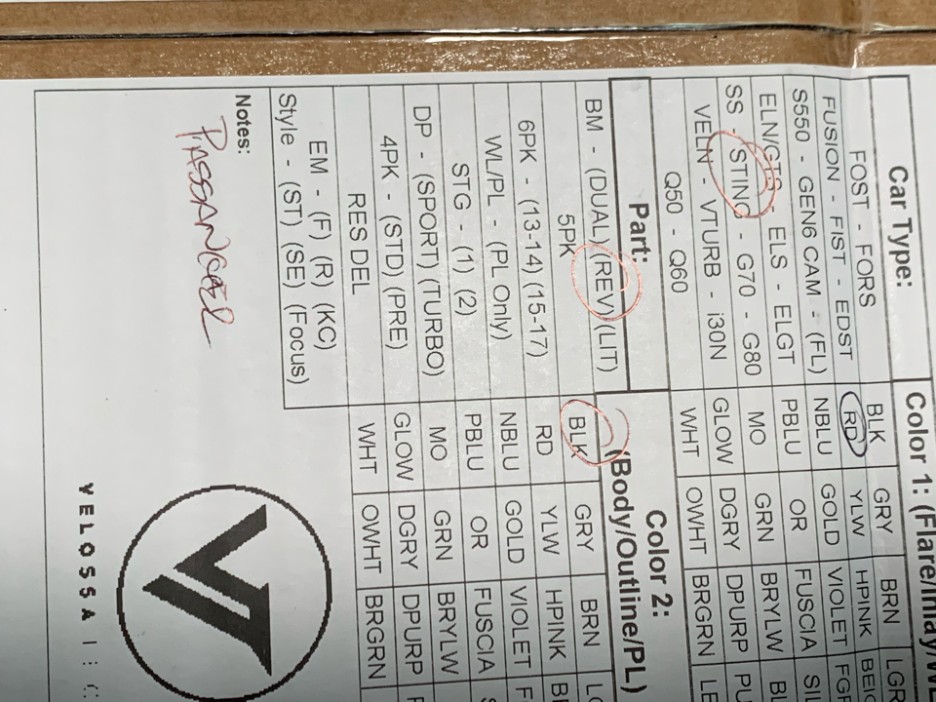 Car Type:
FOST - FORS
FUSION - FIST - EDST
S550 - GEN6 CAM - (FL)
ELN/GTS - ELS - ELGT
SS - STING - G70 - G80
VELN - VTURB - i30N
Q50 - Q60
Part:
BM - (DUAL) (REV) (LIT)
5PK
6PK - (13-14) (15-17)
WL/PL - (PL Only)
STG - (1) (2)
DP - (SPORT) (TURBO)
4PK - (STD) (PRE)
RES DEL
EM - (F) (R) (KC)
Style - (ST) (SE) (Focus)
Notes:
Color 1: (Flare/Inlay/
BLK GRY BRN LGR
RD YLW HPINK BEIG
NBLU GOLD VIOLET FGR
PBLU OR FUSCIA SIL
MO GRN BRYLW BL
GLOW DGRY DPURP PU
WHT OWHT BRGRN LE
Color 2:
(Body/Outline/PL)
BLK GRY BRN LG
RD YLW HPINK BE
NBLU GOLD VIOLET F
PBLU OR FUSCIA S
MO GRN BRYLW
GLOW DGRY DPURP
WHT OWHT BRGRN
VELOSSA